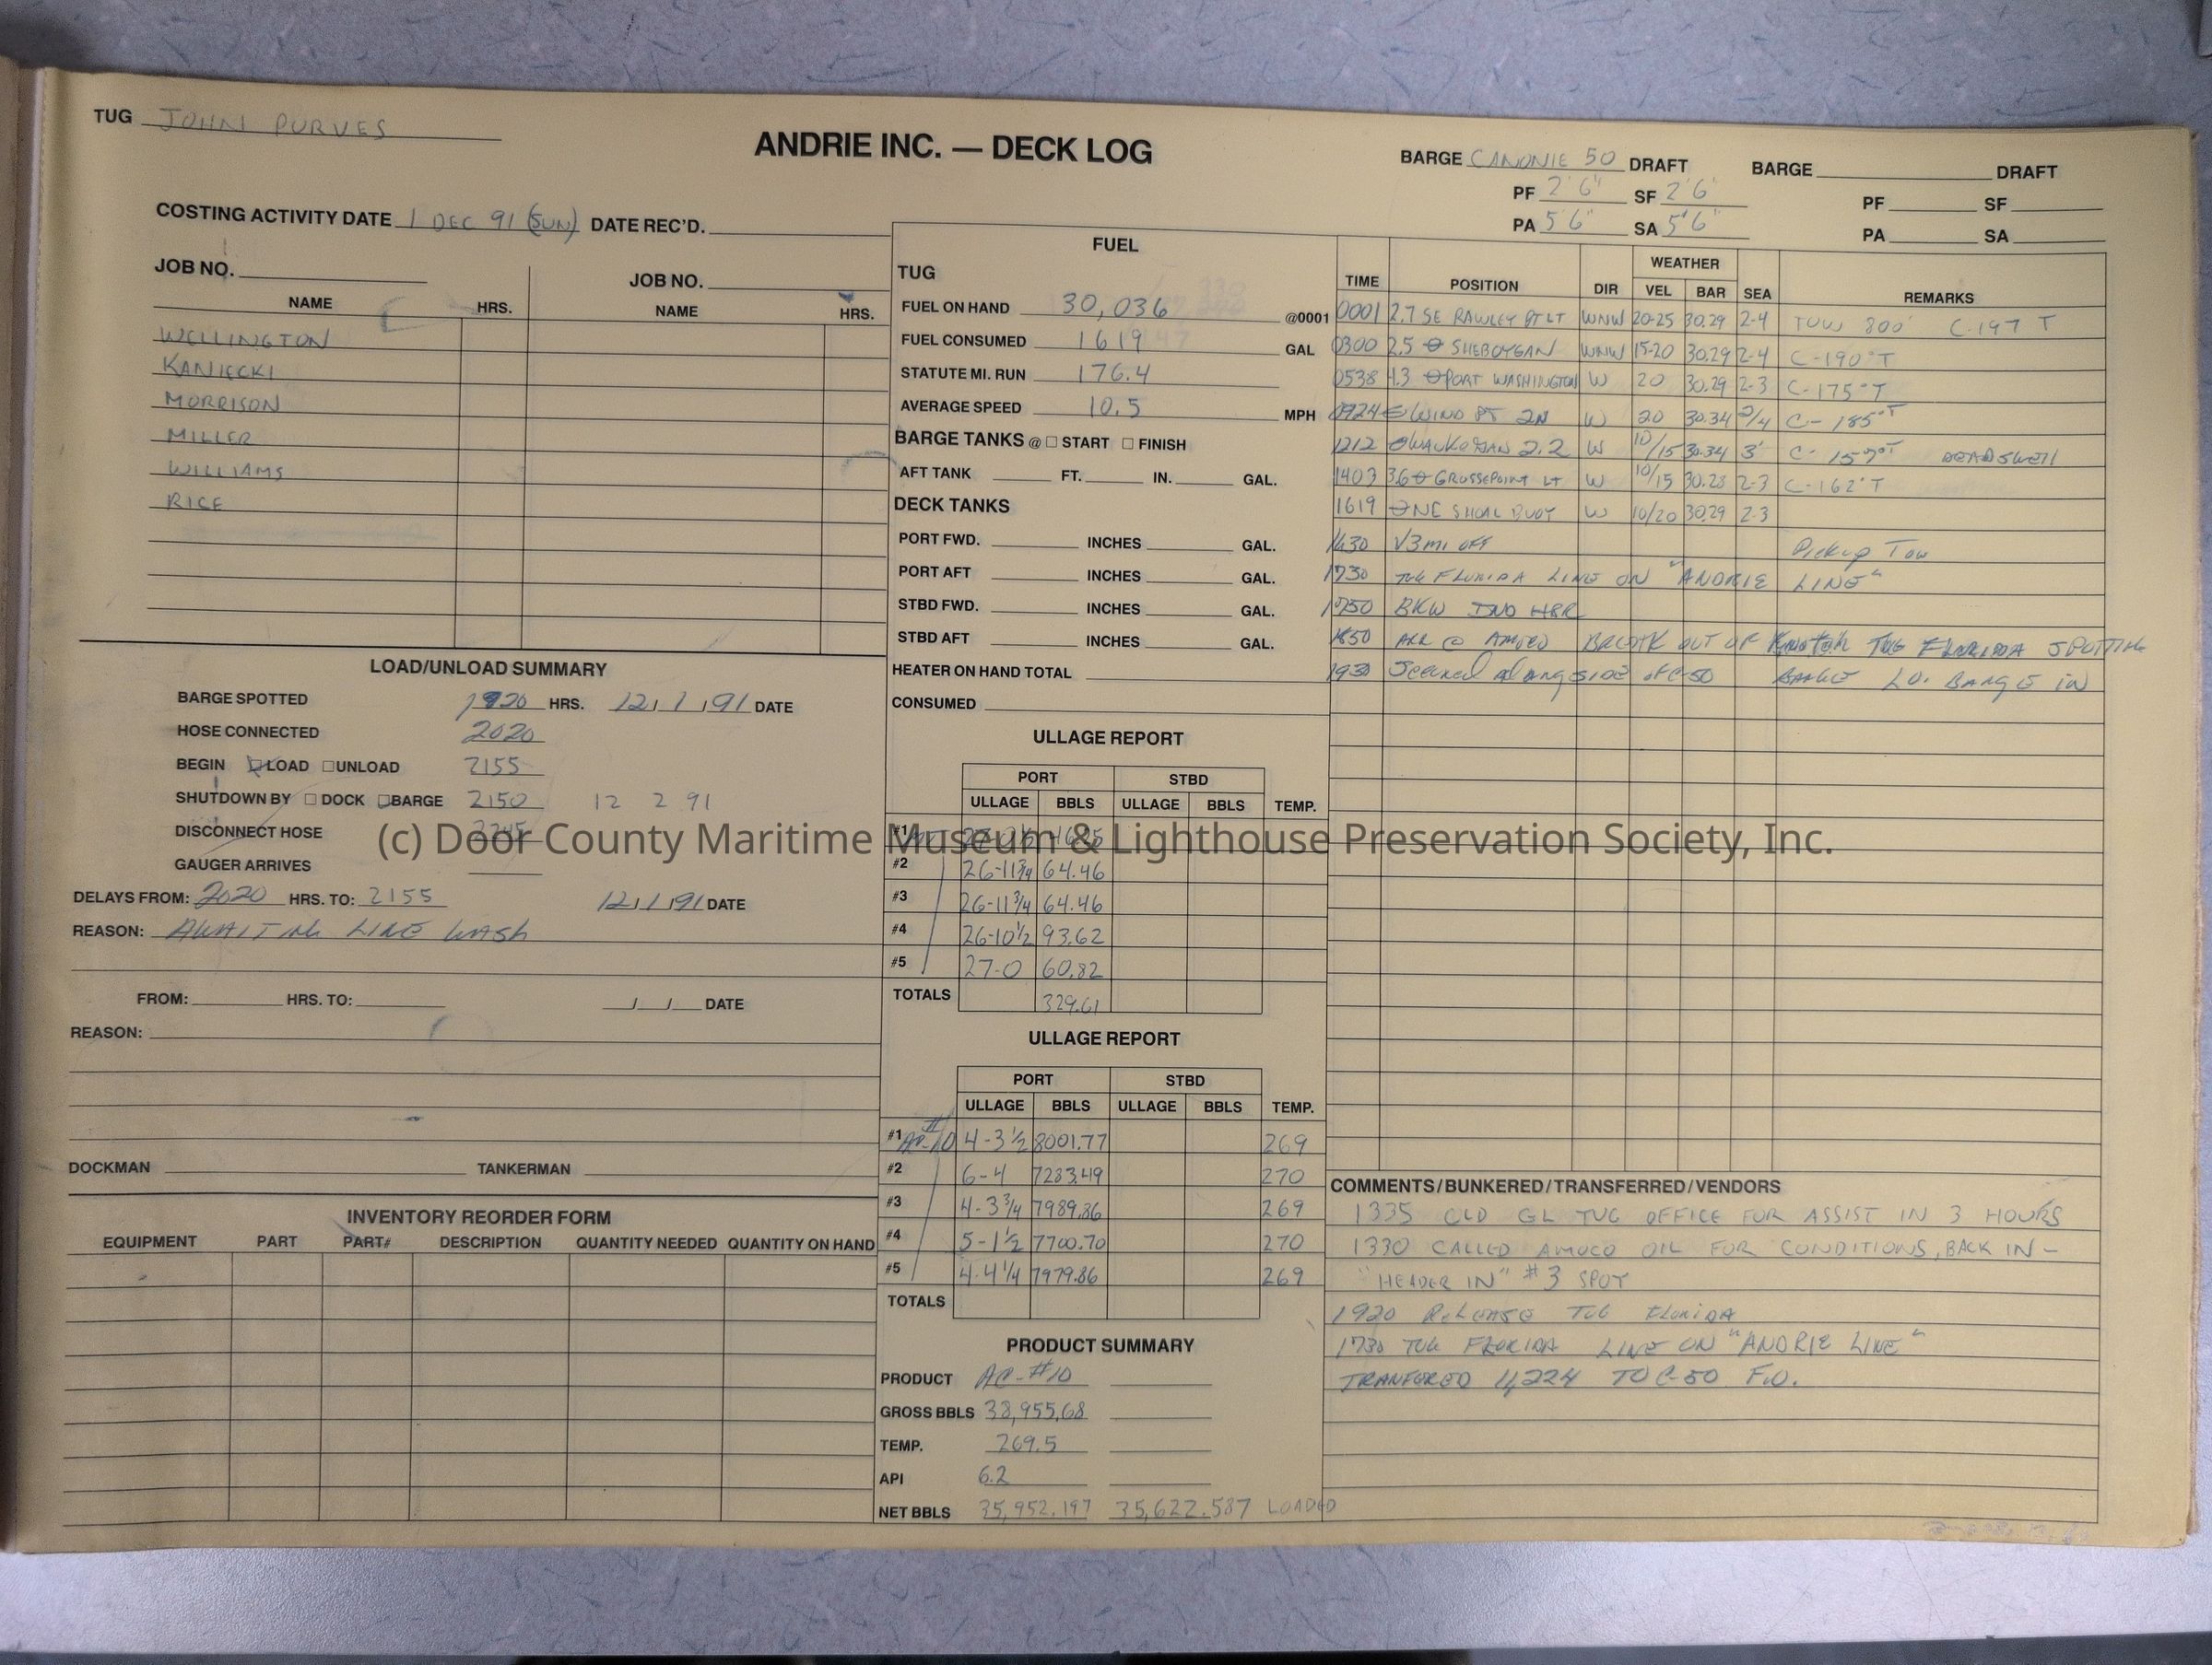 TUG JOHN PURVES
ANDRIE INC. — DECK LOG
BARGE CANONIE 50 DRAFT
PF 2'6" SF 2'6"
PA 5'6" SA 5'6"
BARGE DRAFT
PF SF
PA SA
COSTING ACTIVITY DATE 1 DEC 91 (SUN) DATE REC'D.
JOB NO. JOB NO.
NAME HRS. NAME HRS.
WELLINGTON
KANIECKI
MORRISON
MILLER
WILLIAMS
RICE
LOAD/UNLOAD SUMMARY
BARGE SPOTTED 1920 HRS. 12/1/91 DATE
HOSE CONNECTED 2020
BEGIN ☑LOAD ☐UNLOAD 2155
SHUTDOWN BY ☐ DOCK ☐BARGE 2150 12 2 91
DISCONNECT HOSE
GAUGER ARRIVES
DELAYS FROM: 2020 HRS. TO: 2155 12/1/91 DATE
REASON: AWAITING LINE WASH
FROM: HRS. TO: / / DATE
REASON:
DOCKMAN TANKERMAN
INVENTORY REORDER FORM
EQUIPMENT PART PART# DESCRIPTION QUANTITY NEEDED QUANTITY ON HAND
FUEL
TUG
FUEL ON HAND 30,036 @0001
FUEL CONSUMED 1619 GAL
STATUTE MI. RUN 176.4
AVERAGE SPEED 10.5 MPH
BARGE TANKS @ ☐ START ☐ FINISH
AFT TANK FT. IN. GAL.
DECK TANKS
PORT FWD. INCHES GAL.
PORT AFT INCHES GAL.
STBD FWD. INCHES GAL.
STBD AFT INCHES GAL.
HEATER ON HAND TOTAL
CONSUMED
ULLAGE REPORT
PORT STBD
ULLAGE BBLS ULLAGE BBLS TEMP.
#1
#2 26-11 3/4 64.46
#3 26-11 3/4 64.46
#4 26-10 1/2 93.62
#5 27-0 60.82
TOTALS 329.61
ULLAGE REPORT
PORT STBD
ULLAGE BBLS ULLAGE BBLS TEMP.
#1 AC-#10 4-3 1/2 8001.77 269
#2 6-4 7283.49 270
#3 4-3 3/4 7989.86 269
#4 5-1 1/2 7700.70 270
#5 4-4 1/4 7979.86 269
TOTALS
PRODUCT SUMMARY
PRODUCT AC-#10
GROSS BBLS 38,955.68
TEMP. 269.5
API 6.2
NET BBLS 35,952.197 35,622.587 LOADED
TIME POSITION DIR WEATHER VEL BAR SEA REMARKS
0001 2.7 SE RAWLEY PT LT WNW 20-25 30.29 2-4 TOW 800' C-197 T
0300 2.5 ⊖ SHEBOYGAN WNW 15-20 30.29 2-4 C-190°T
0538 4.3 ⊖ PORT WASHINGTON W 20 30.29 2-3 C-175°T
0924 E WIND PT 2N W 20 30.34 2/4 C-185°T
1212 ⊖ WAUKEGAN 2.2 W 10/15 30.34 3' C-157°T DEADSWELL
1403 3.6 ⊖ GROSSEPOINT LT W 10/15 30.28 2-3 C-162°T
1619 ⊖ NE SHOAL BUOY W 10/20 30.29 2-3
1630 3mi off Pickup Tow
1730 TUG FLORIDA LINE ON "ANDRIE LINE"
1750 BKW IND HBR
1850 ARR @ AMOCO BREAK OUT OF Knotch TUG FLORIDA SPOTTING
1930 Secured alongside of C-50 BARGE LD. BARGE IN
COMMENTS/BUNKERED/TRANSFERRED/VENDORS
1335 CLD GL TUG OFFICE FOR ASSIST IN 3 HOURS
1330 CALLED AMOCO OIL FOR CONDITIONS, BACK IN -
"HEADER IN" #3 SPOT
1920 RELEASE TUG FLORIDA
1730 TUG FLORIDA LINE ON "ANDRIE LINE"
TRANFERED 4,224 TO C-50 F.O.
(c) Door County Maritime Museum & Lighthouse Preservation Society, Inc.